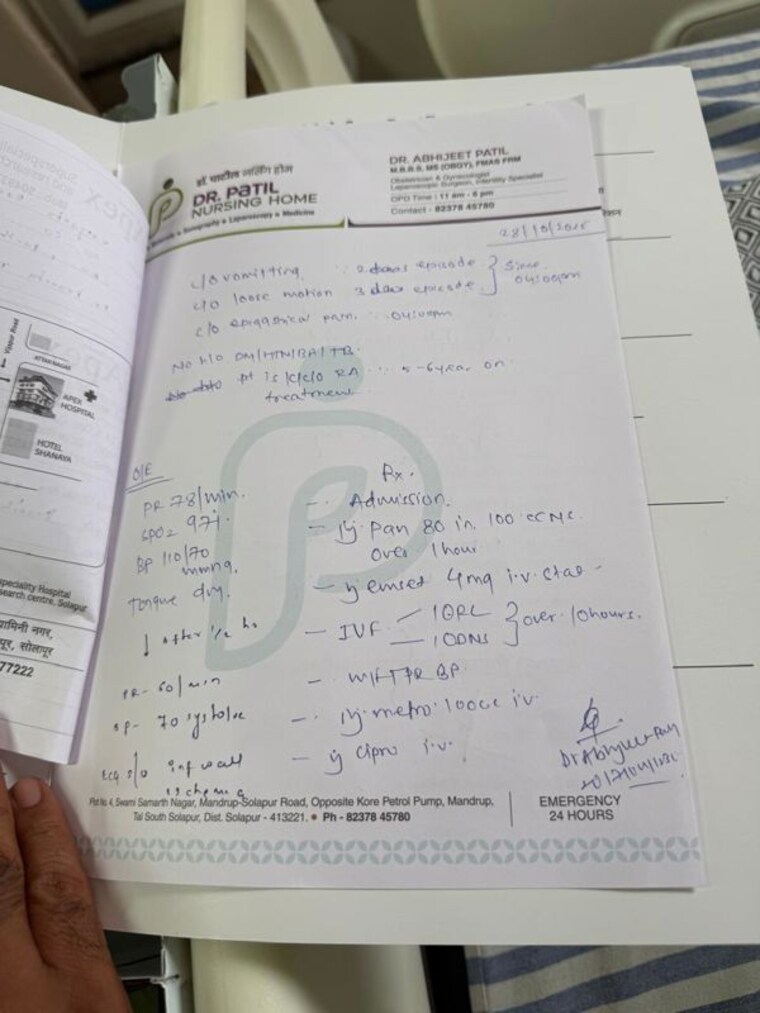 डॉ. पाटील नर्सिंग होम
DR. PATIL
NURSING HOME
Sonography • Laparoscopy • Medicine
DR. ABHIJEET PATIL
M.B.B.S, MS (OBGY), FMAS FRM
Obstetrician & Gynacologist
Laparoscopic Surgeon, Infertility Specialist
OPD Time : 11 am - 6 pm
Contact - 82378 45780
c/o vomitting 2 episode } Since
c/o loose motion 3 episode } 04:00pm
c/o epigastrical pain 04:00pm
No H/O DM/HTN/BA/TB
pt is k/c/o RA on
treatment
O/E
Rx.
PR 78/min.
SPO2 97%
BP 110/70
mmhg.
Tongue dry.
↓ after 1/2 hr
PR - 60/min
BP - 70 systolic
ECG s/o inf wall
ischemia
- Admission.
- Inj. Pan 80 in 100 cc NS
over 1 hour
- Inj emset 4mg i.v. stat
- IVF 1 RL } over 10 hours.
1 DNS
- W/F TPR BP.
- Inj. metro 100cc i.v.
- Inj cipro i.v.
Plot No. 4, Swami Samarth Nagar, Mandrup-Solapur Road, Opposite Kore Petrol Pump, Mandrup,
Tal South Solapur, Dist. Solapur - 413221. • Ph - 82378 45780
EMERGENCY
24 HOURS
APEX
HOSPITAL
HOTEL
SHANAYA
speciality Hospital
search centre, Solapur
सोलापूर
77222